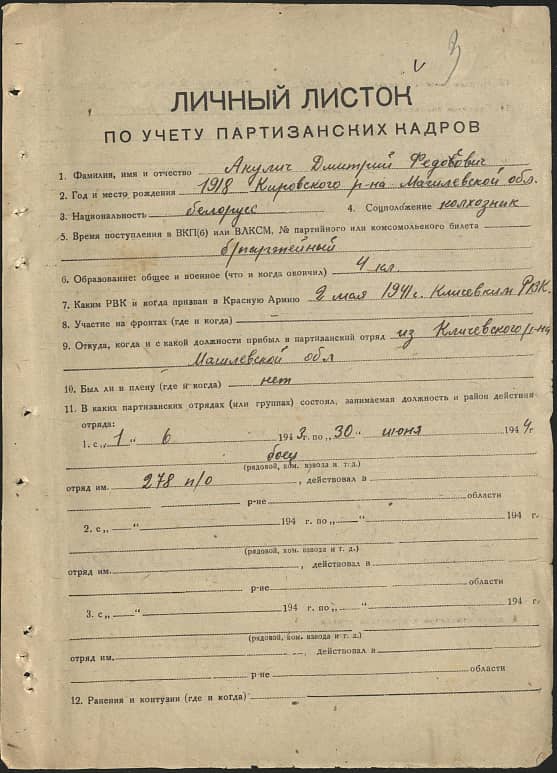 ЛИЧНЫЙ ЛИСТОК
ПО УЧЕТУ ПАРТИЗАНСКИХ КАДРОВ
1. Фамилия, имя и отчество Акулич Дмитрий Федорович
2. Год и место рождения 1918 Кировского р-на Магилевской обл.
3. Национальность белорусс 4. Соцположение колхозник
5. Время поступления в ВКП(б) или ВЛКСМ, № партийного или комсомольского билета
б/партейный
6. Образование: общее и военное (что и когда окончил) 4 кл.
7. Каким РВК и когда призван в Красную Армию 2 мая 1941 г. Кличевким РВК.
8. Участие на фронтах (где и когда)
9. Откуда, когда и с какой должности прибыл в партизанский отряд из Кличевского р-на
Магилевской обл
10. Был ли в плену (где и когда) нет
11. В каких партизанских отрядах (или группах) состоял, занимаемая должность и район действия
отряда:
1. с „1“ 6 1943 г. по „30“ июня 1944 г.
боец
(рядовой, ком. взвода и т. д.)
отряд им. 278 п/о, действовал в
р-не области
2. с „ “ 194 г. по „ “ 194 г.
(рядовой, ком. взвода и т. д.)
отряд им. , действовал в
р-не области
3. с „ “ 194 г. по „ “ 194 г.
(рядовой, ком. взвода и т. д.)
отряд им. , действовал в
р-не области
12. Ранения и контузии (где и когда)